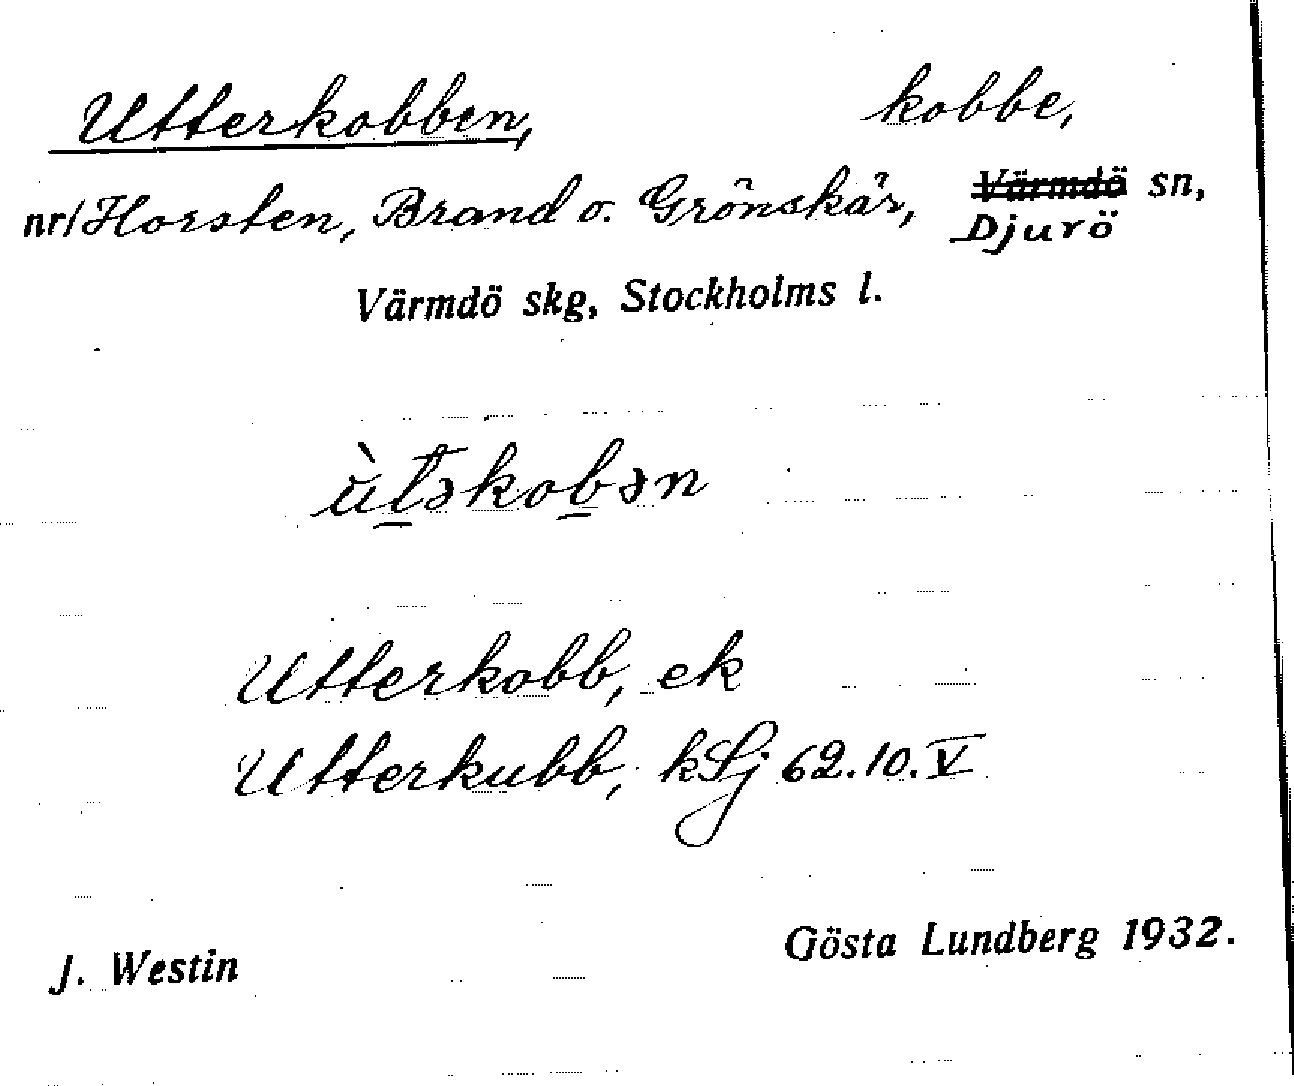 Utterkobben, kobbe,
nr/Horsten, Brand o. Grönskär, Värmdö sn,
Djurö
Värmdö skg, Stockholms l.
ùt̲əkob̲ən
Utterkobb, ek
Utterkubb, kSj 62.10.V
J. Westin Gösta Lundberg 1932.